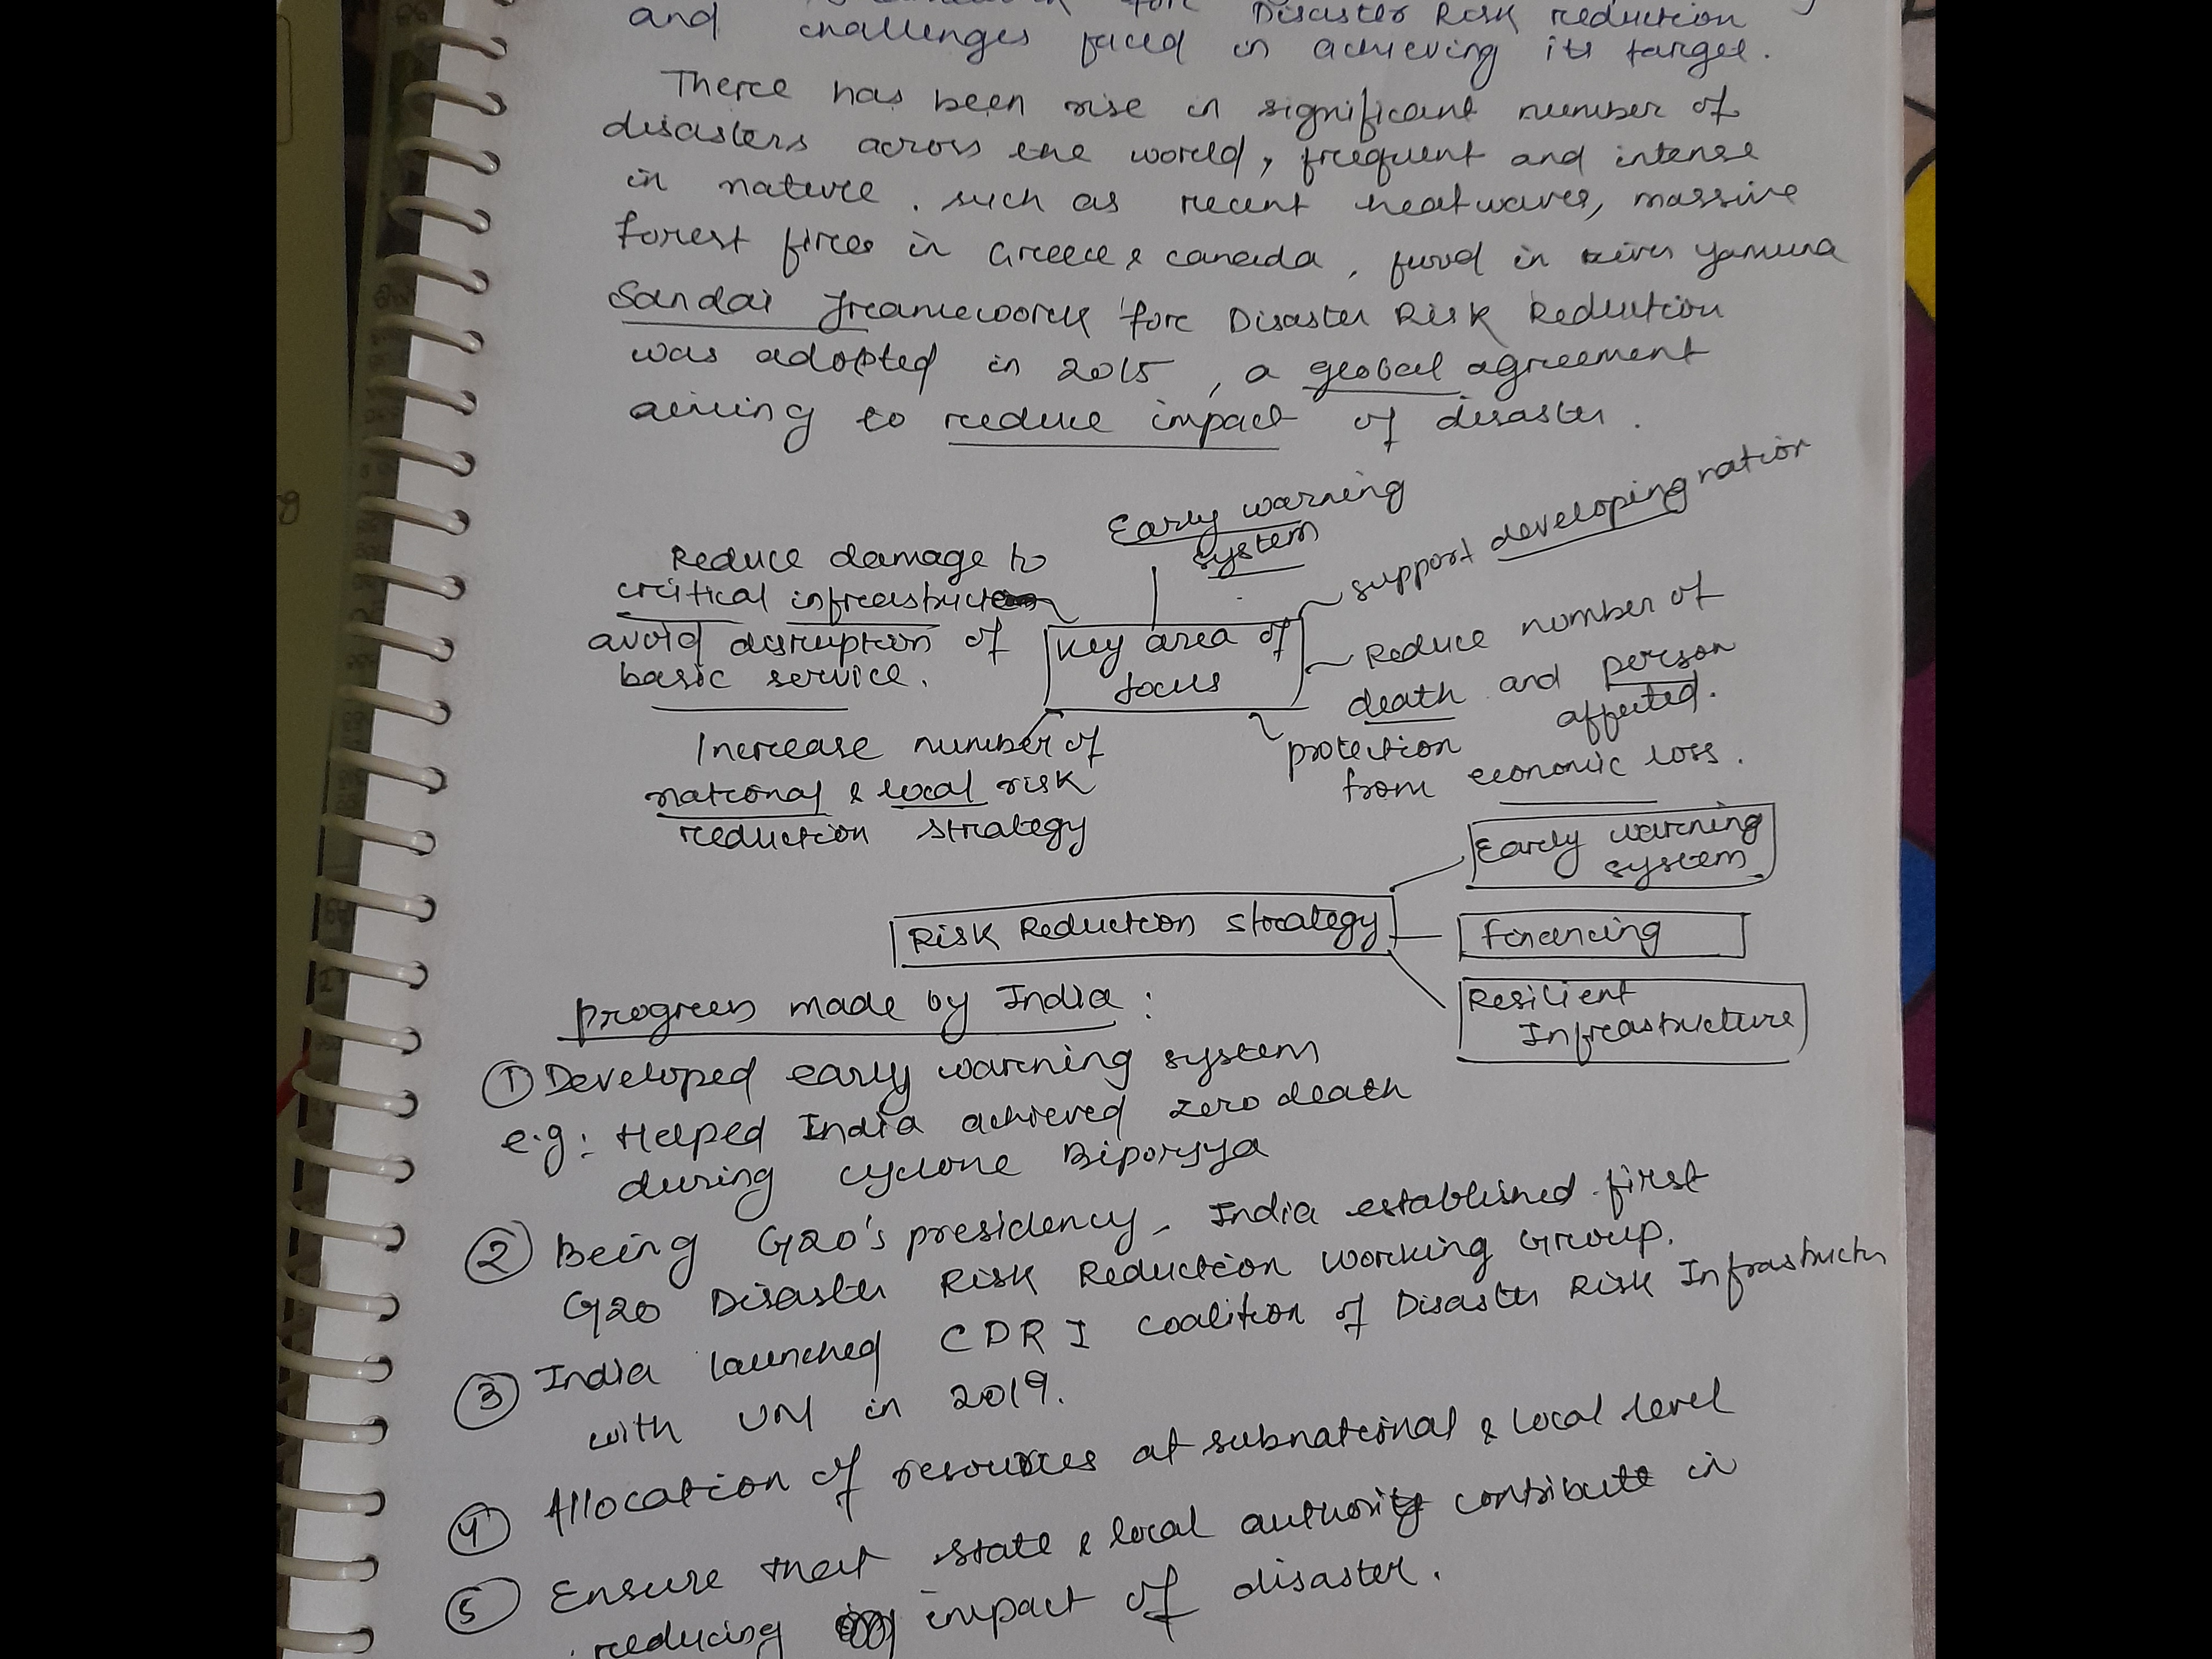 for Disaster Risk reduction
and challenges faced in achieving its target.
There has been rise in significant number of
disasters across the world, frequent and intense
in nature. such as recent heatwaves, massive
forest fires in Greece & canada, flood in river Yamuna
Sandai Framework for Disaster Risk Reduction
was adopted in 2015, a global agreement
aiming to reduce impact of disaster.
Early warning
system
support developing nation
Reduce damage to
critical infrastructure
avoid disruption of
basic service.
Key area of
focus
Reduce number of
death and person
affected.
Increase number of
national & local risk
reduction strategy
protection
from economic loss.
Risk Reduction strategy
Early warning
system
financing
Resilient
Infrastructure
progress made by India:
① Developed early warning system
e.g: Helped India achieved zero death
during cyclone Biporjya
② Being G20's presidency, India established first
G20 Disaster Risk Reduction Working Group.
③ India launched CDRI coalition of Disaster Risk Infrastructure
with UN in 2019.
④ Allocation of resources at subnational & local level
⑤ Ensure that state & local authority contribute in
reducing impact of disaster.